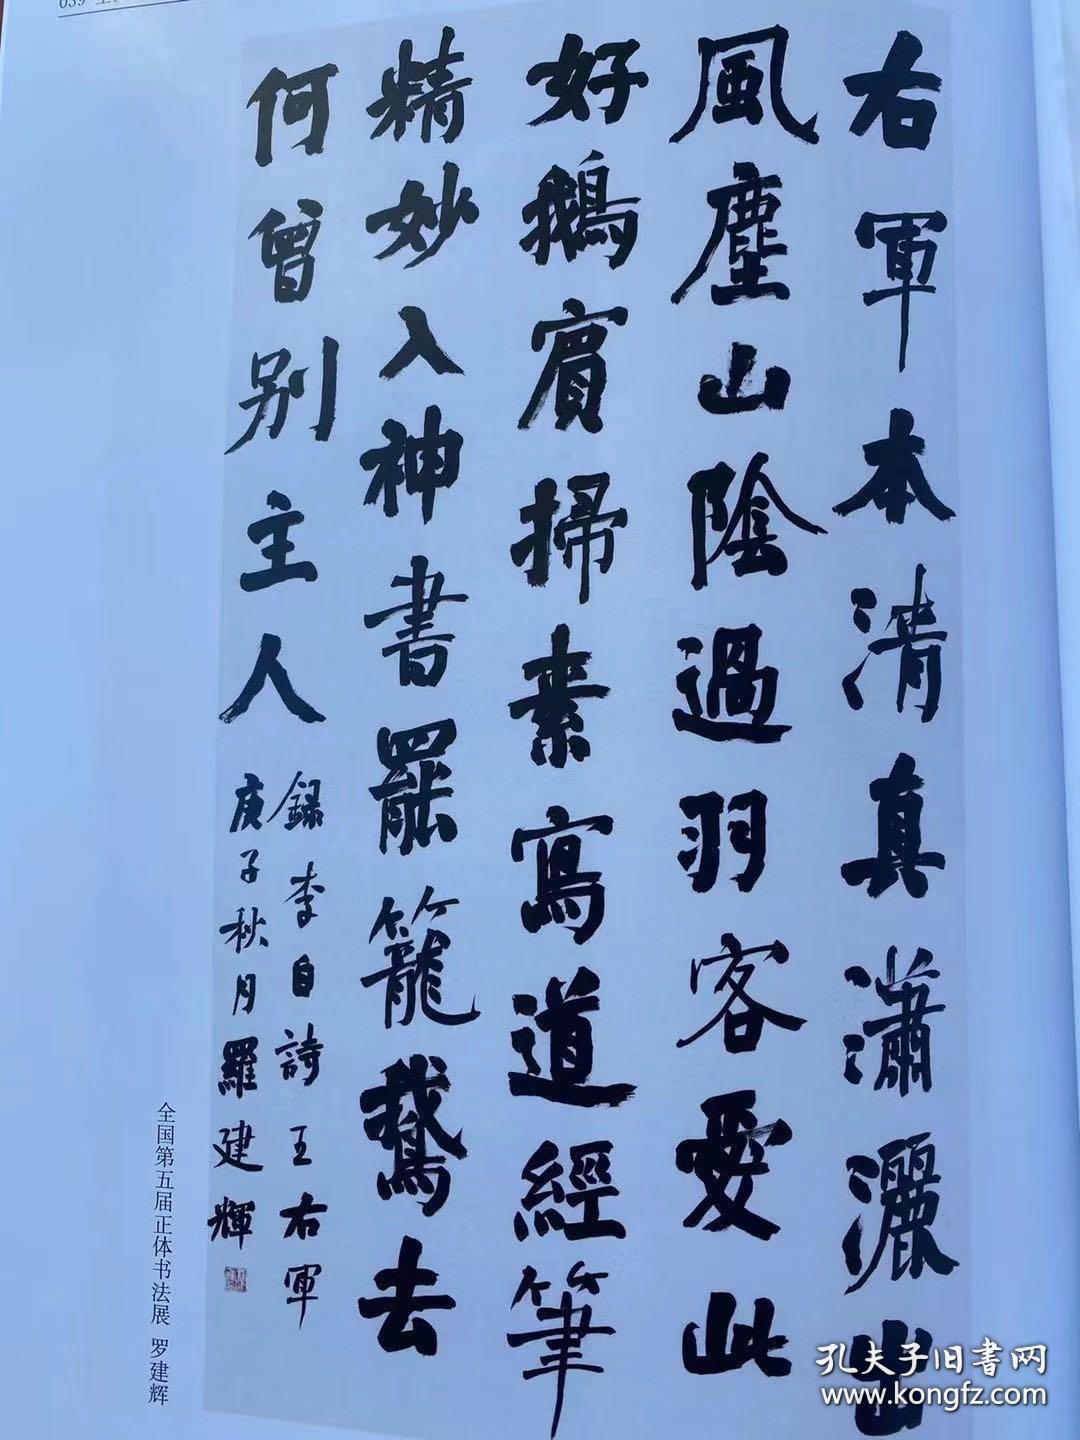 右軍本清真瀟灑出
風塵山陰過羽客愛此
好鵝賓掃素寫道經筆
精妙入神書罷籠鵞去
何曾别主人
錄李自詩王右軍
庚子秋月羅建輝
全国第五届正体书法展 罗建辉
孔夫子旧書网
www.kongfz.com